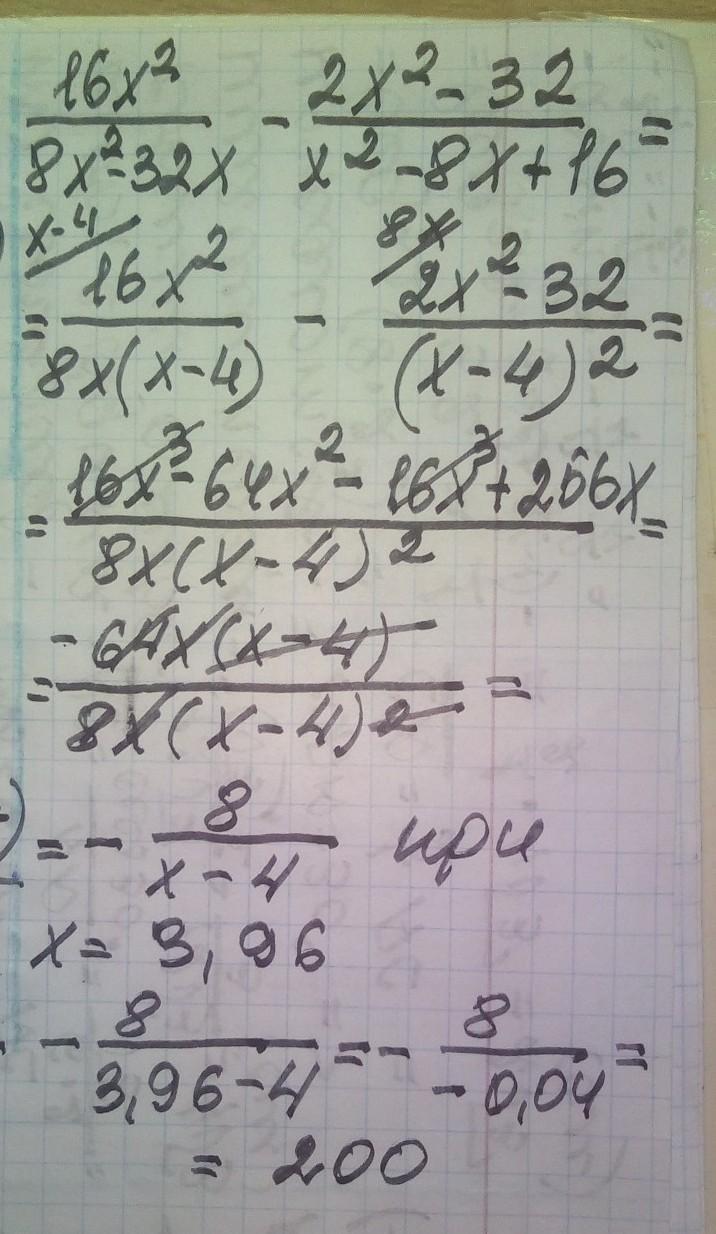 16x² / 8x²-32x - 2x²-32 / x²-8x+16 =
x-4 8x
= 16x² / 8x(x-4) - 2x²-32 / (x-4)² =
= 16x³-64x²-16x³+256x / 8x(x-4)² =
= -64x(x-4) / 8x(x-4)² =
= - 8 / x-4 при
x= 3,96
- 8 / 3,96-4 = - 8 / -0,04 =
= 200